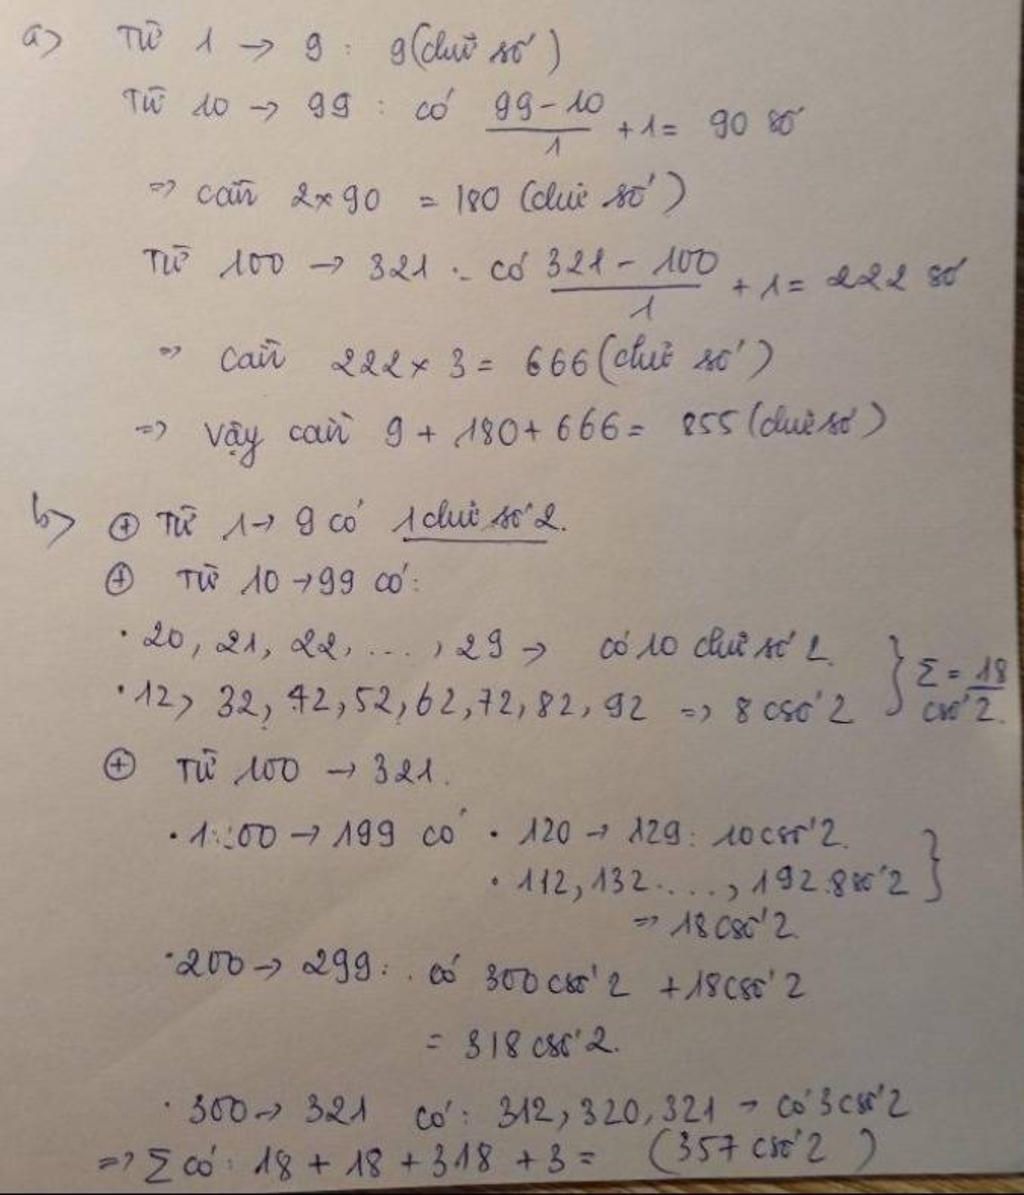 a) Từ 1 → 9 : 9 (chữ số)
Từ 10 → 99 : có (99 - 10)/1 + 1 = 90 số
=> cần 2 x 90 = 180 (chữ số)
Từ 100 → 321 : có (321 - 100)/1 + 1 = 222 số
=> cần 222 x 3 = 666 (chữ số)
=> Vậy cần 9 + 180 + 666 = 855 (chữ số)
b) ⊕ Từ 1 → 9 có 1 chữ số 2.
⊕ Từ 10 → 99 có:
· 20, 21, 22, ..., 29 → có 10 chữ số 2
· 12, 32, 42, 52, 62, 72, 82, 92 => 8 csố 2 } Σ = 18 csố 2.
⊕ Từ 100 → 321.
· 100 → 199 có · 120 → 129: 10 csố 2.
· 112, 132 ...., 192. 8 số 2 }
=> 18 csố 2
· 200 → 299: có 300 csố 2 + 18 csố 2
= 318 csố 2.
· 300 → 321 có: 312, 320, 321 → có 3 csố 2
=> Σ có: 18 + 18 + 318 + 3 = (357 csố 2)